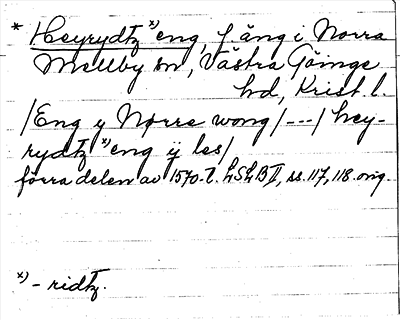 * Heyrydtz x) eng, f äng i Norra
Mellby sn, Västra Göinge
hd, Krist. l.
/Eng y Nørre wong/---/ hey-
rydtz x) eng ij les/
förra delen av 1570-t. LSLB II, ss. 117, 118. orig.
x) - ridtz.